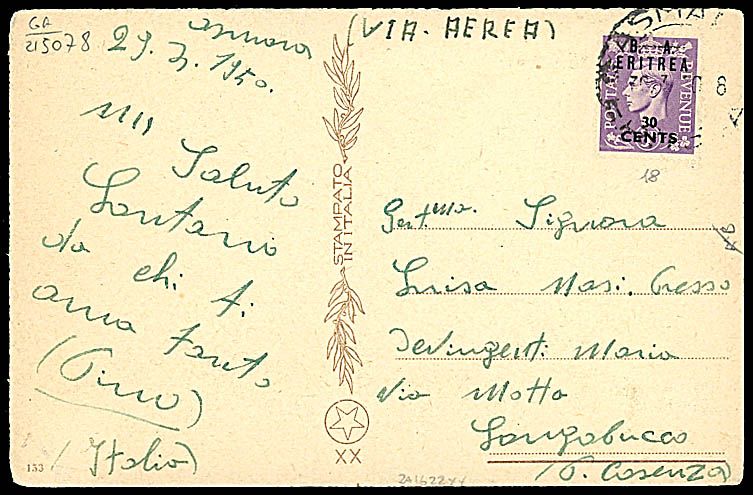 GA
215078
Asmara
29. 3. 1950.
(VIA. AEREA)
SMA
B. A.
ERITREA
POSTAGE
REVENUE
30
CENTS
18
Un Saluto
Lontano
da chi ti
ama tanto
(Pino)
(Italia)
STAMPATO
IN ITALIA
XX
153
Gent.ma. Signora
Luisa Masi. Presso
Devingenti Maria
Via Motta
Longobucco
(P. Cosenza)